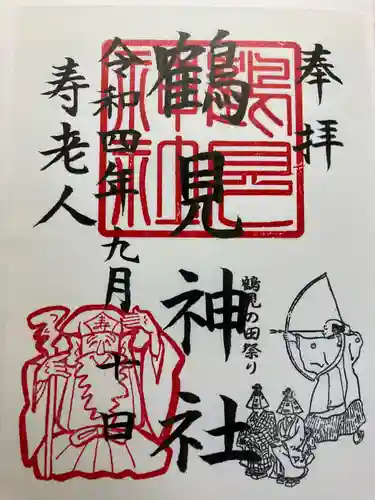 奉拝
鶴見神社
令和四年九月十日
寿老人
鶴見の田祭り
寿